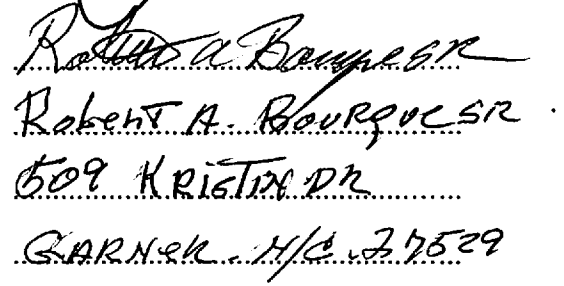 Robert A Bourque SR
Robert A. Bourque SR.
509 KRISTIN DR
GARNER. N/C. 27529